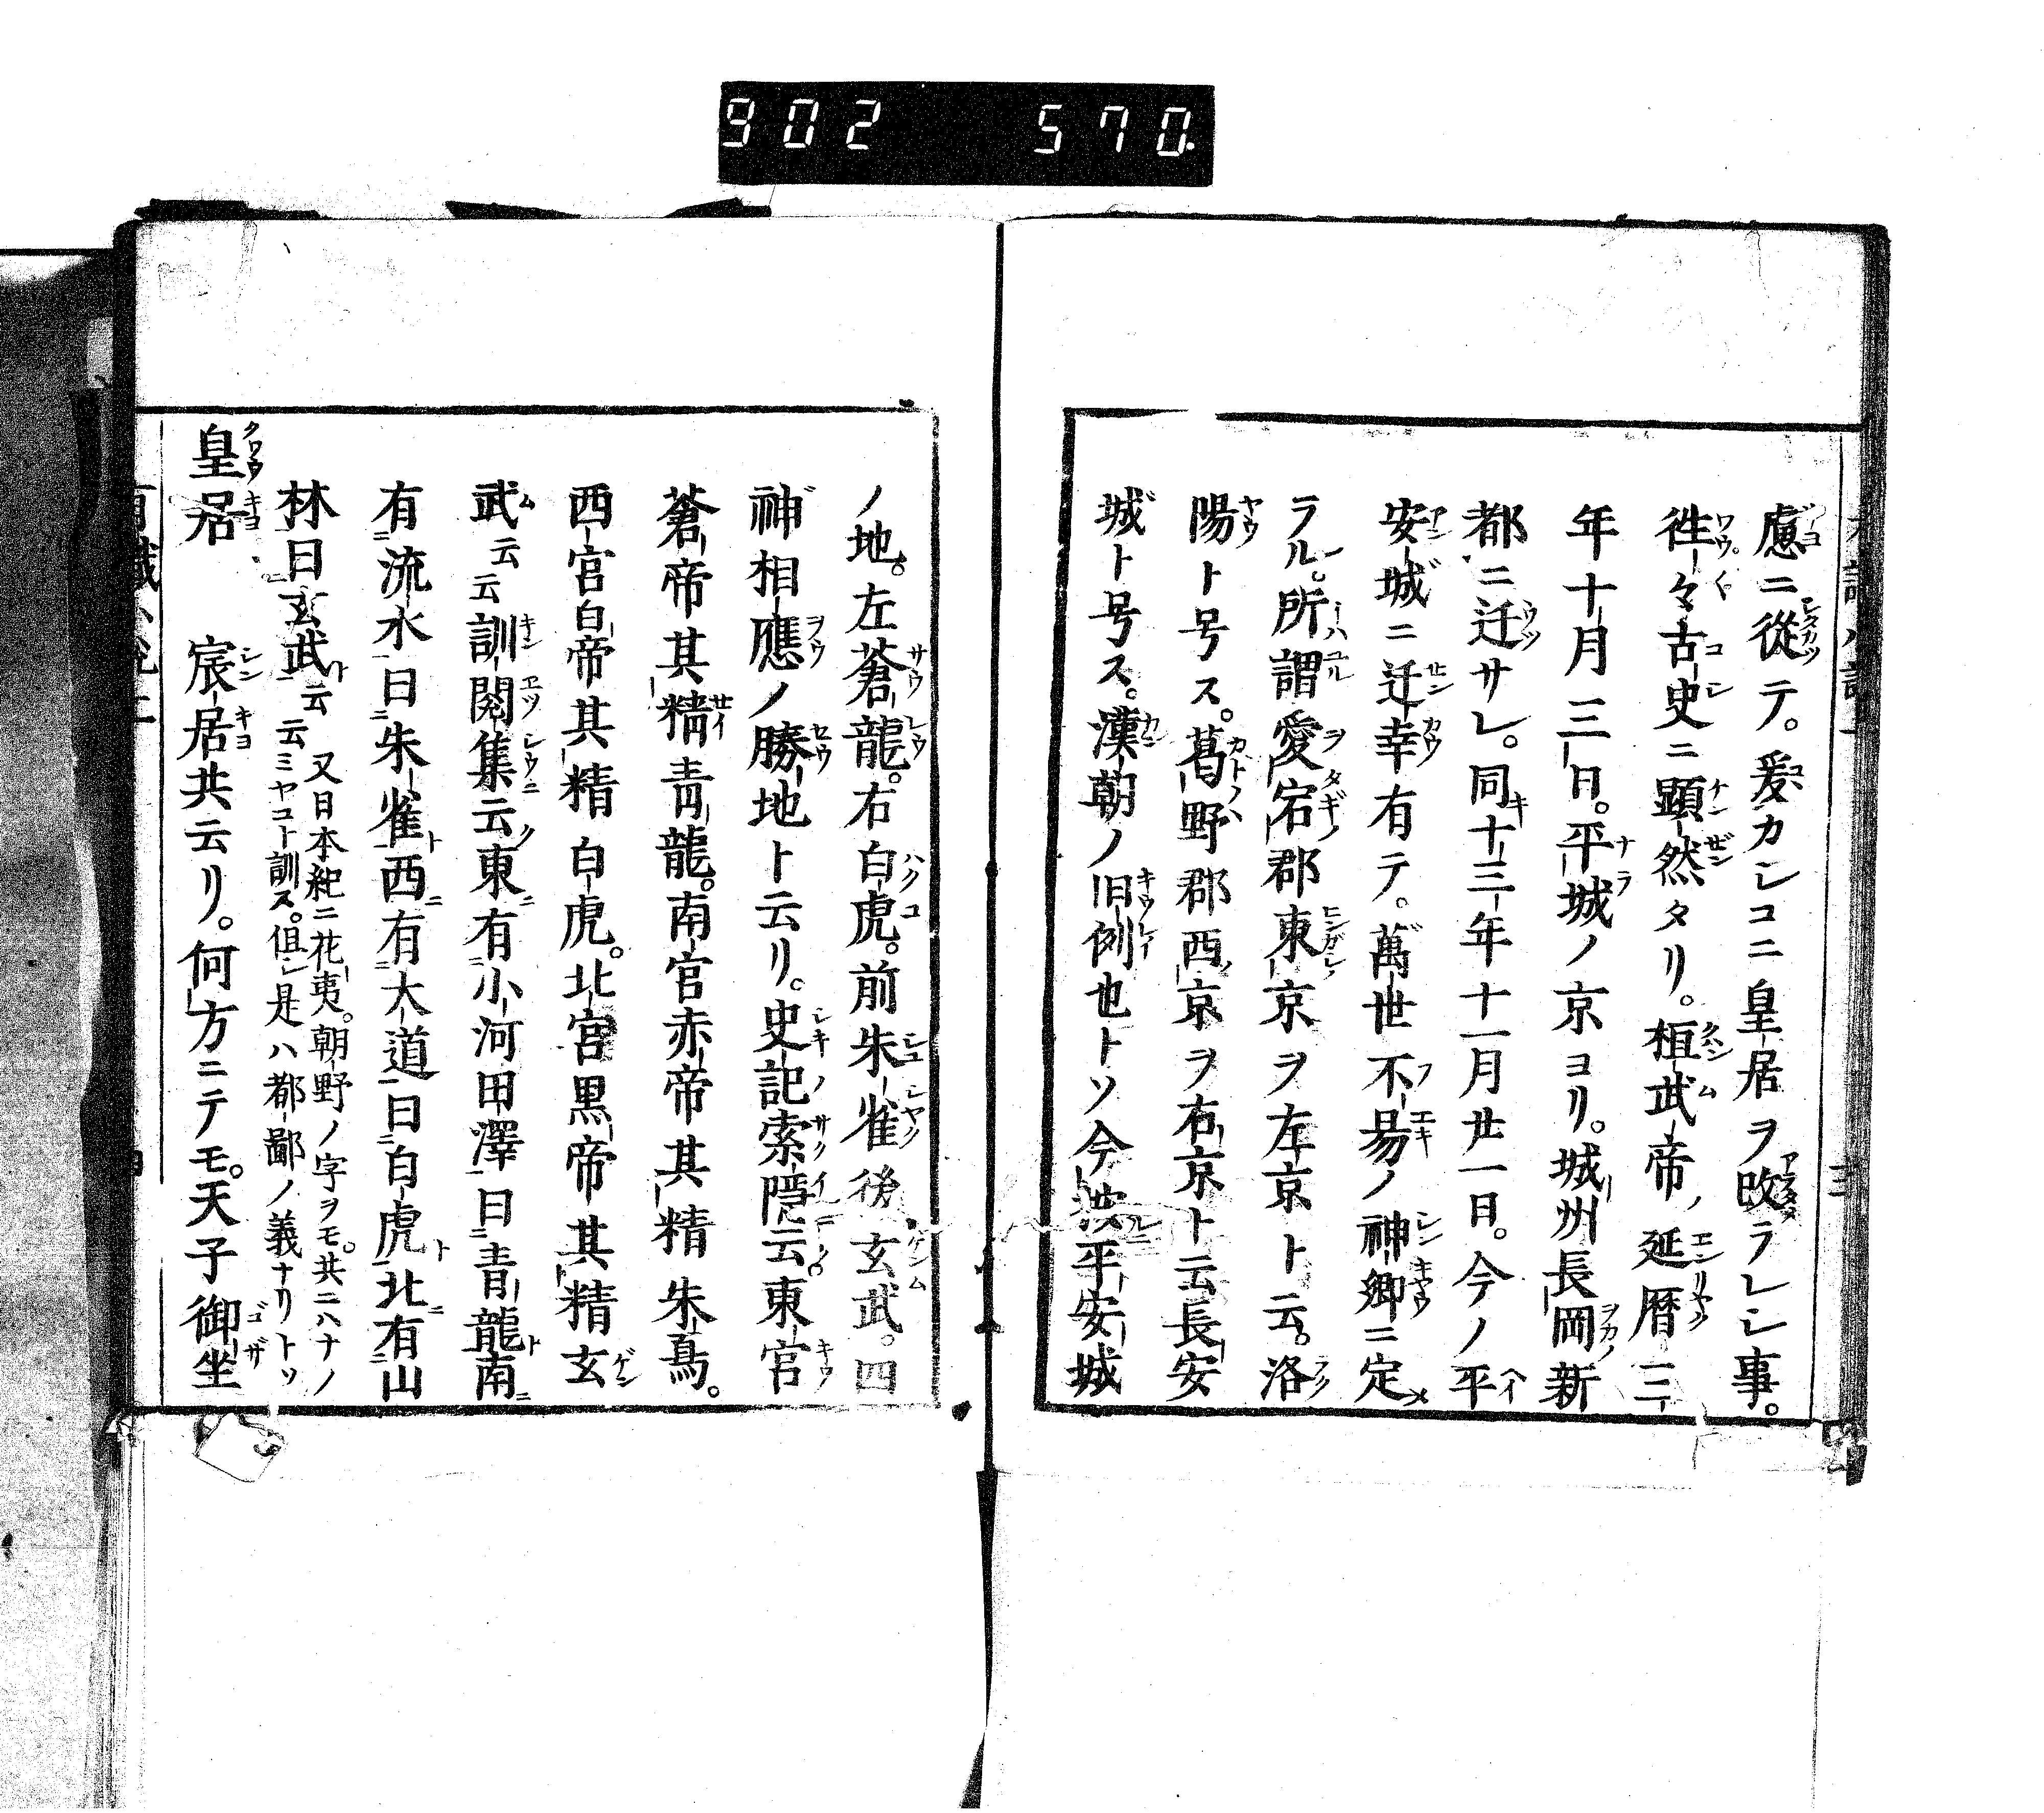 902 570
慮ニ從テ。爰カシコニ皇居ヲ改ラレシ事。
徃々古史ニ顕然タリ。桓武帝ノ延暦三
年十月三日。平城ノ京ヨリ。城州長岡新
都ニ迁サレ。同十三年十一月廿一日。今ノ平
安城ニ迁幸有テ。萬世不易ノ神郷ニ定
ラル。所謂愛宕郡東京ヲ左京ト云。洛
陽ト号ス。葛野郡西京ヲ右京ト云長安
城ト号ス。漢朝ノ旧例也トソ今洪平安城
ノ地。左蒼龍。右白虎。前朱雀後玄武。四
神相應ノ勝地ト云リ。史記索隱云。東宮
蒼帝其精青龍。南宮赤帝其精朱鳥。
西宮白帝其精白虎。北宮黒帝其精玄
武云云訓閲集云東有小河田澤曰青龍南
有流水曰朱雀西有大道曰白虎北有山
林曰玄武云云
又日本紀ニ花夷。朝野ノ字ヲモ。共ニハナノ
ミヤコト訓ス。俱シ是ハ都鄙ノ義ナリトソ
皇居 宸居共云リ。何方ニテモ。天子御坐